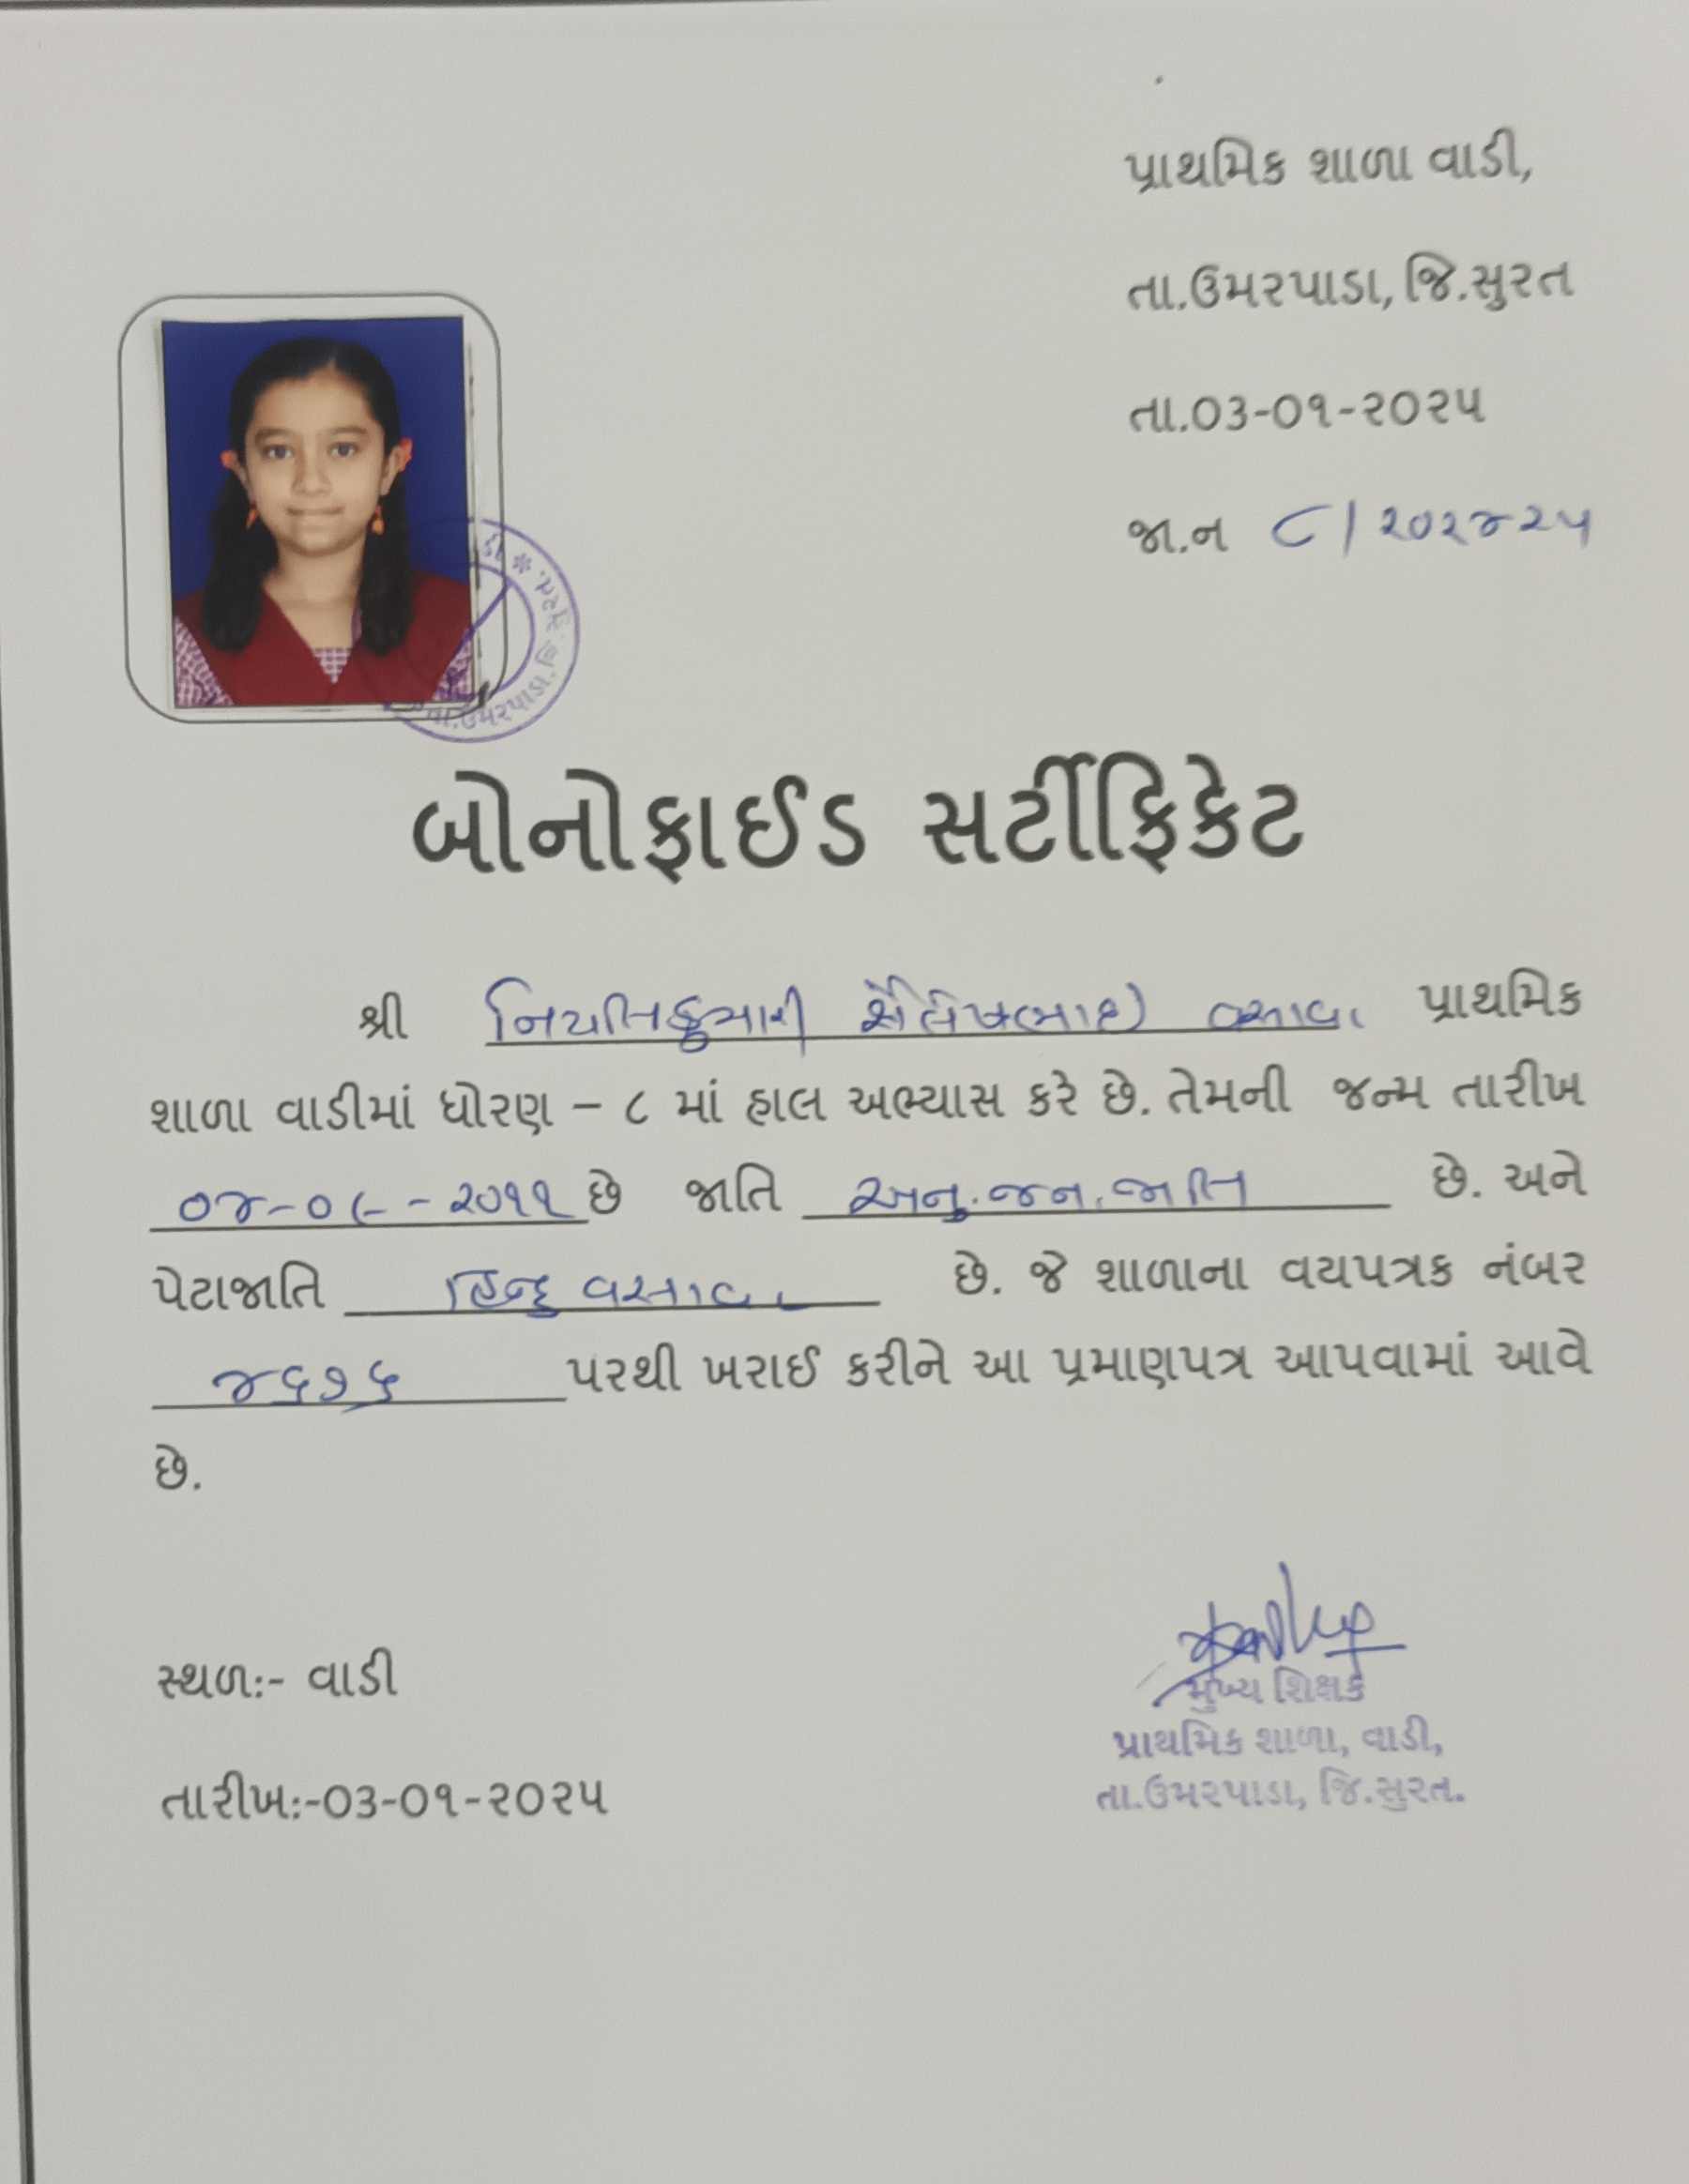 પ્રાથમિક શાળા વાડી,
તા.ઉમરપાડા, જિ.સુરત
તા.૦૩-૦૧-૨૦૨૫
જા.ન ૮/૨૦૨૪૨૫
તા.ઉમરપાડા. જિ.સુરત. *
બોનોફાઈડ સર્ટીફિકેટ
શ્રી નિયતિકુમારી શૈલેષભાઈ વસાવા પ્રાથમિક
શાળા વાડીમાં ધોરણ – ૮ માં હાલ અભ્યાસ કરે છે. તેમની જન્મ તારીખ
૦૪-૦૯-૨૦૧૧ છે જાતિ અનુ.જન.જાતિ છે. અને
પેટાજાતિ હિન્દુ વસાવા છે. જે શાળાના વયપત્રક નંબર
૪૬૭૬ પરથી ખરાઈ કરીને આ પ્રમાણપત્ર આપવામાં આવે
છે.
સ્થળ:- વાડી
તારીખ:-૦૩-૦૧-૨૦૨૫
મુખ્ય શિક્ષક
પ્રાથમિક શાળા, વાડી,
તા.ઉમરપાડા, જિ.સુરત.